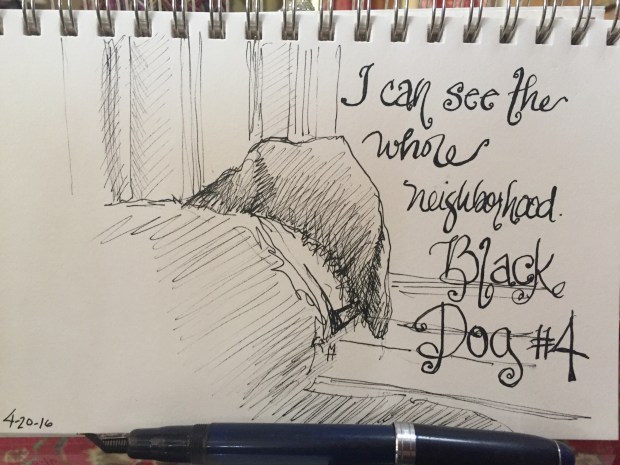 I can see the
whole
neighborhood.
Black
Dog #4
4-20-16